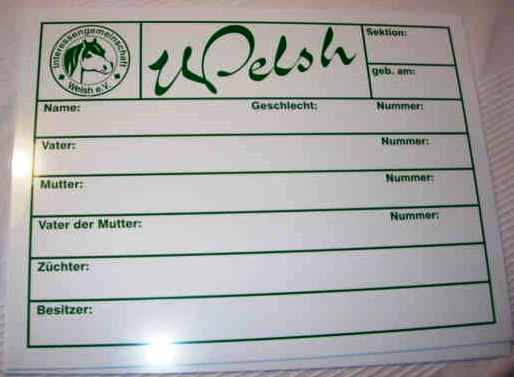 Interessengemeinschaft
Welsh e.V.
Welsh
Sektion:
geb. am:
Name: Geschlecht: Nummer:
Vater: Nummer:
Mutter: Nummer:
Vater der Mutter: Nummer:
Züchter:
Besitzer: